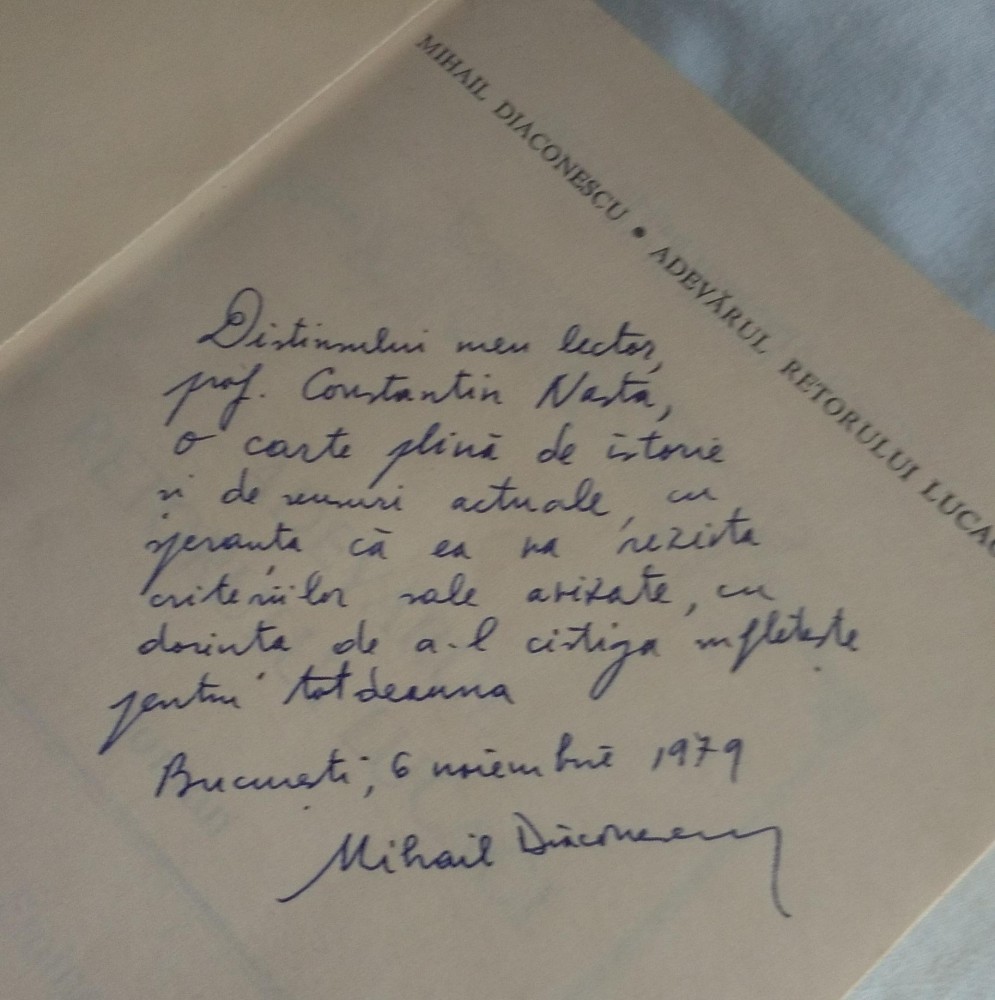 MIHAIL DIACONESCU • ADEVĂRUL RETORULUI LUCAC
Distinsului meu lector,
prof. Constantin Nasta,
o carte plină de istorie
și de sensuri actuale, cu
speranța că ea va rezista
criteriilor sale avizate, cu
dorința de a-l cîștiga sufletește
pentru totdeauna
București, 6 noiembrie 1979
Mihail Diaconescu